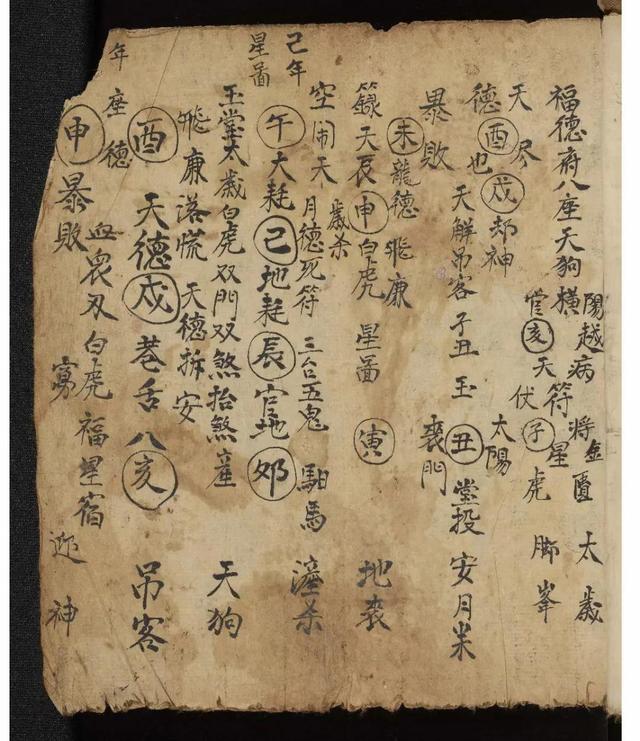 福德府八座天狗橫陽越病將金匱太歲
天官亥天符星
德酉戌却神伏子虎脚峯
也天解吊客子丑玉太陽
暴敗丑堂投安月米
未龍德飛廉喪門
天辰申白虎星啚寅地喪
空閙天歲杀
月德死符三台五鬼馹馬
己年
星啚
午大耗巳地耗辰官地卯
玉堂太歲白虎双門双煞抬煞產天狗
飛廉落慌天德拆安
酉天德戌巷舌八亥吊客
年
座德
申暴敗
血刃白虎福星宿
迎神